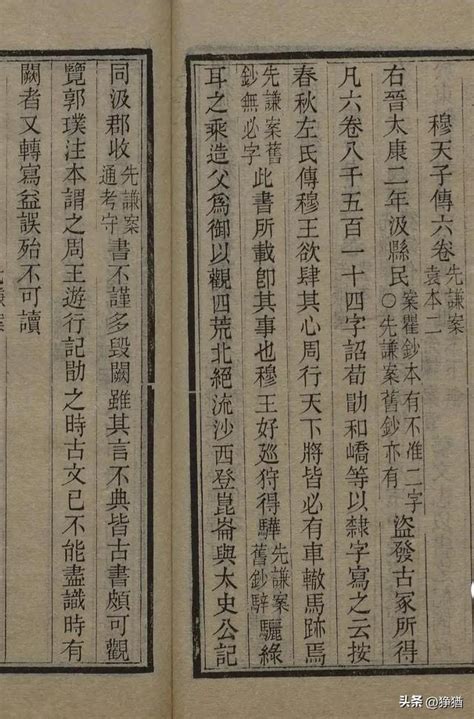 穆天子傳六卷先謙案袁本二
右晉太康二年汲縣民案瞿鈔本有不准二字〇先謙案舊鈔亦有盜發古冢所得
凡六卷八千五百一十四字詔荀勖和嶠等以隸字寫之云按
春秋左氏傳穆王欲肆其心周行天下將皆必有車轍馬跡焉
先謙案舊鈔無必字此書所載卽其事也穆王好巡狩得驊先謙案舊鈔騂驪綠
耳之乘造父爲御以觀四荒北絕流沙西登崑崙與太史公記
同汲郡收先謙案通考守書不謹多毀闕雖其言不典皆古書頗可觀
覽郭璞注本謂之周王遊行記勖之時古文已不能盡識時有
闕者又轉寫益誤殆不可讀
头条 @狰猶